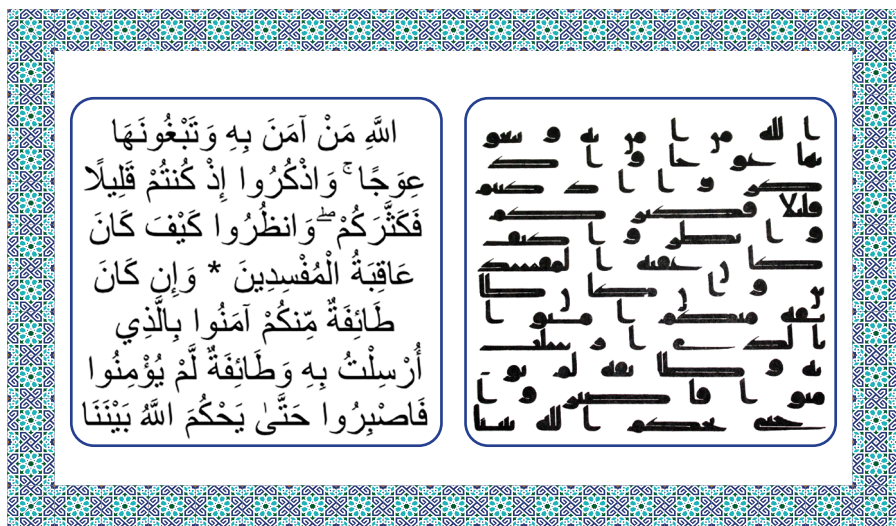 الله من امن به وتبغو
نها عوجا واذ
كروا اذ كنتم
قليلا فكثركم
وانظروا كيف
كان عقبة المفسد
ين وان كان طا
ئفة منكم امنوا
بالذي ارسلت
به وطائفة لم يؤ
منوا فاصبروا
حتى يحكم الله بيننا
اللَّهِ مَنْ آمَنَ بِهِ وَتَبْغُونَهَا
عِوَجًا ۚ وَاذْكُرُوا إِذْ كُنتُمْ قَلِيلًا
فَكَثَّرَكُمْ ۖ وَانظُرُوا كَيْفَ كَانَ
عَاقِبَةُ الْمُفْسِدِينَ * وَإِن كَانَ
طَائِفَةٌ مِّنكُمْ آمَنُوا بِالَّذِي
أُرْسِلْتُ بِهِ وَطَائِفَةٌ لَّمْ يُؤْمِنُوا
فَاصْبِرُوا حَتَّىٰ يَحْكُمَ اللَّهُ بَيْنَنَا